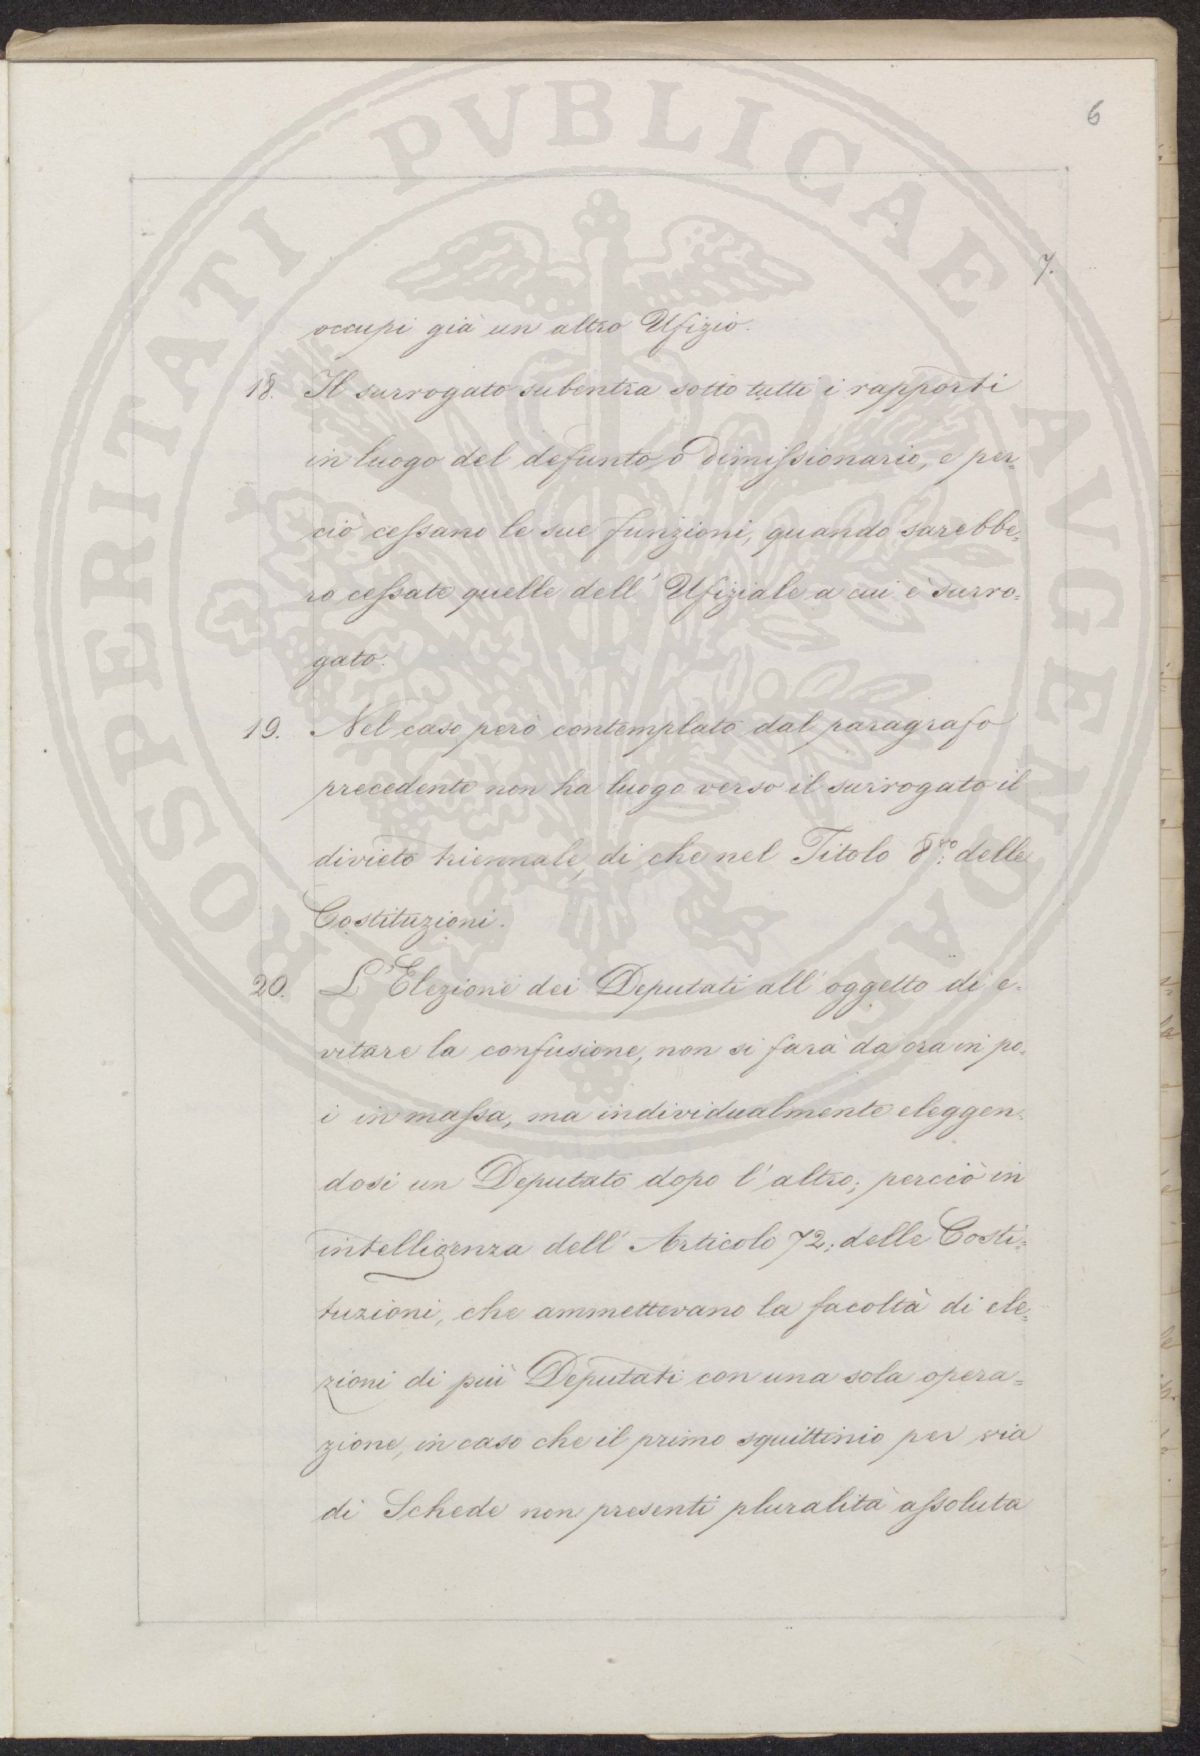 6
7.
occupi già un altro Ufizio.
18. Il surrogato subentra sotto tutti i rapporti
in luogo del defunto, o dimissionario, e per=
ciò cessano le sue funzioni, quando sarebbe=
ro cessate quelle dell' Ufiziale a cui è surro=
gato.
19. Nel caso però contemplato dal paragrafo
precedente non ha luogo verso il surrogato il
divieto triennale, di che nel Titolo 8.vo delle
Costituzioni.
20. L'Elezione dei Deputati all' oggetto di e=
vitare la confusione, non si farà da ora in po=
i in massa, ma individualmente eleggen=
dosi un Deputato dopo l'altro; perciò in
intelligenza dell' Articolo 72: delle Costi=
tuzioni, che ammettevano la facoltà di ele=
zioni di più Deputati con una sola opera=
zione, in caso che il primo squittinio per via
di Schede non presenti pluralità assoluta
PROSPERITATI PVBLICAE AVGENDAE